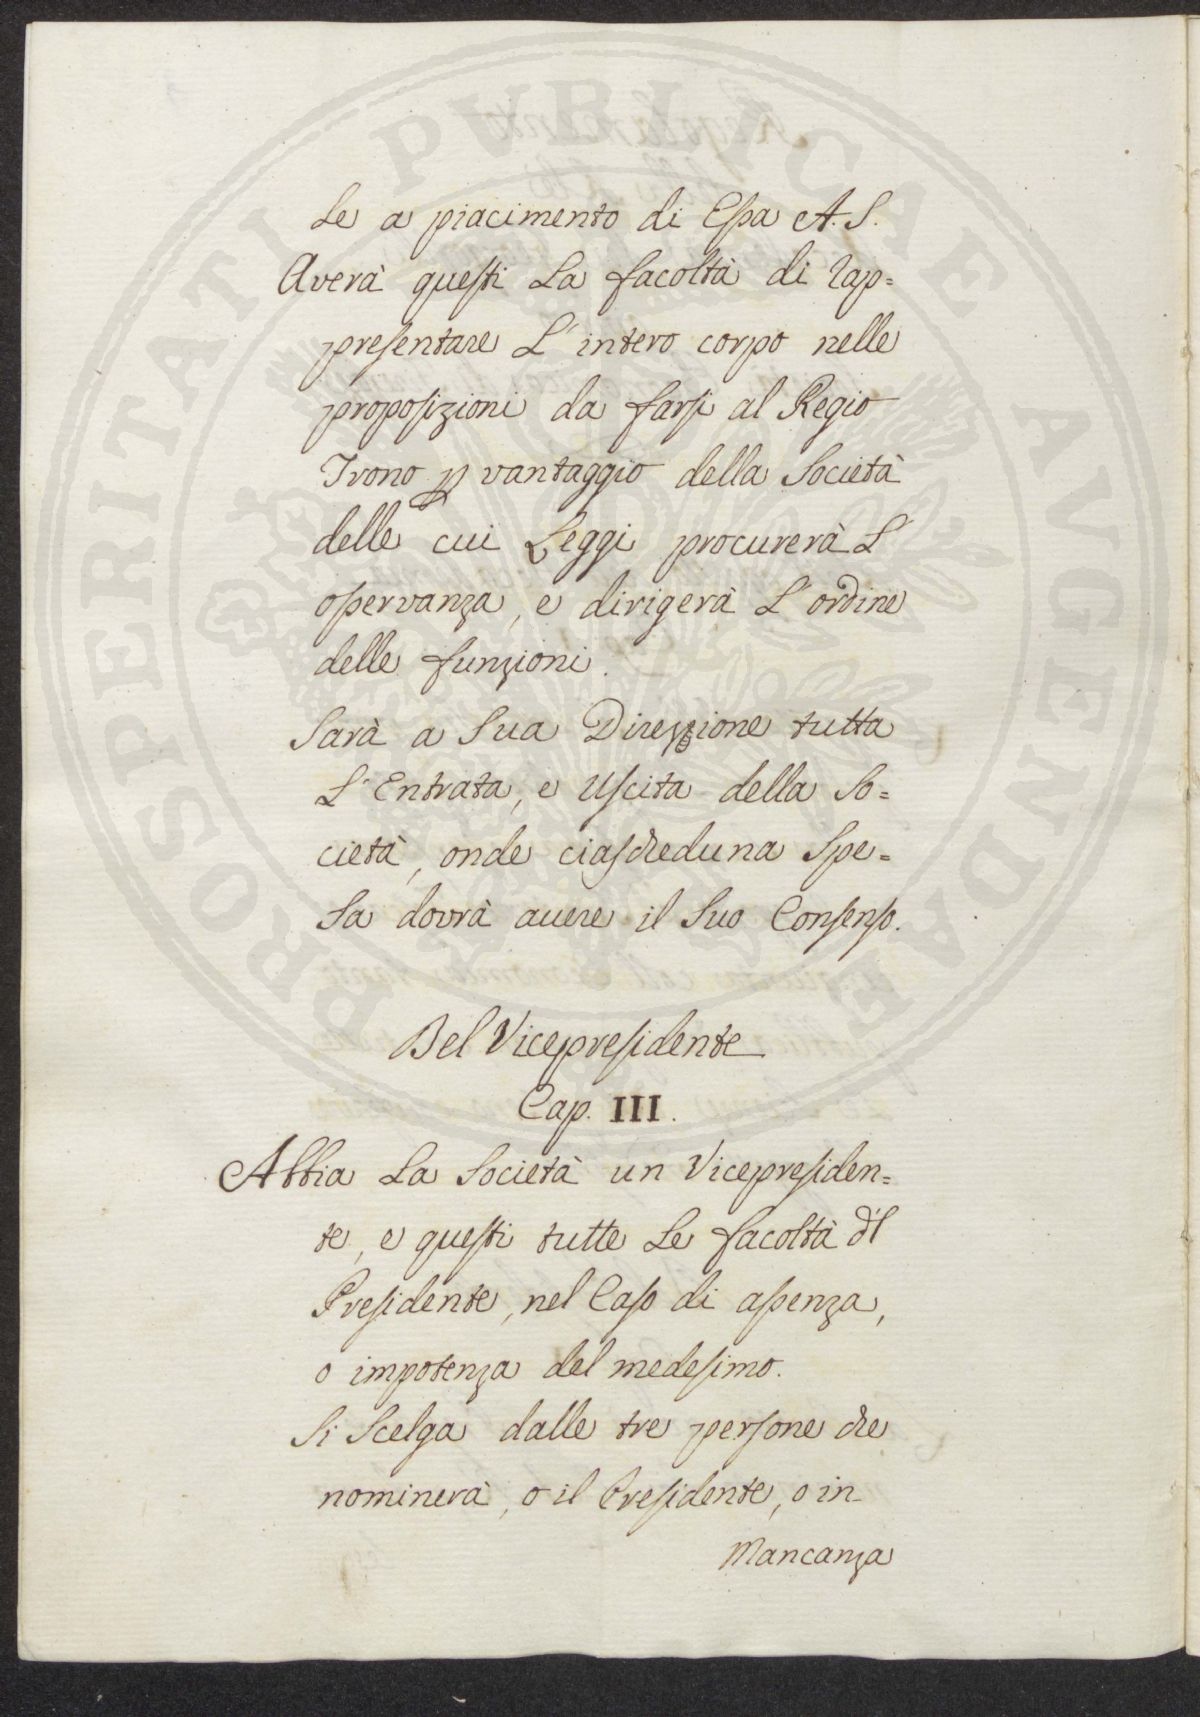 le a piacimento di Eſsa A. S.
Averà queſti La facoltà di rap=
preſentare L'intero corpo nelle
propoſizioni da farſi al Regio
Trono p vantaggio della Società
delle cui Leggi procurerà L'
oſservanza, e dirigerà L'ordine
delle funzioni.
Sarà a Sua Direzzione tutta
L'Entrata, e Uſcita della So=
cietà, onde ciaſcheduna Spe=
Sa dovrà avere il Suo Conſenſo.
Del Vicepreſidente
Cap. III.
Abbia La Società un Vicepreſiden=
te, e queſti tutte Le facoltà d'l
Preſidente, nel Caſo di aſsenza,
o impotenza del medeſimo.
Si Scelga dalle tre perſone che
nominerà, o il Preſidente, o in
Mancanza
PROSPERITATI PUBLICAE AVGENDAE